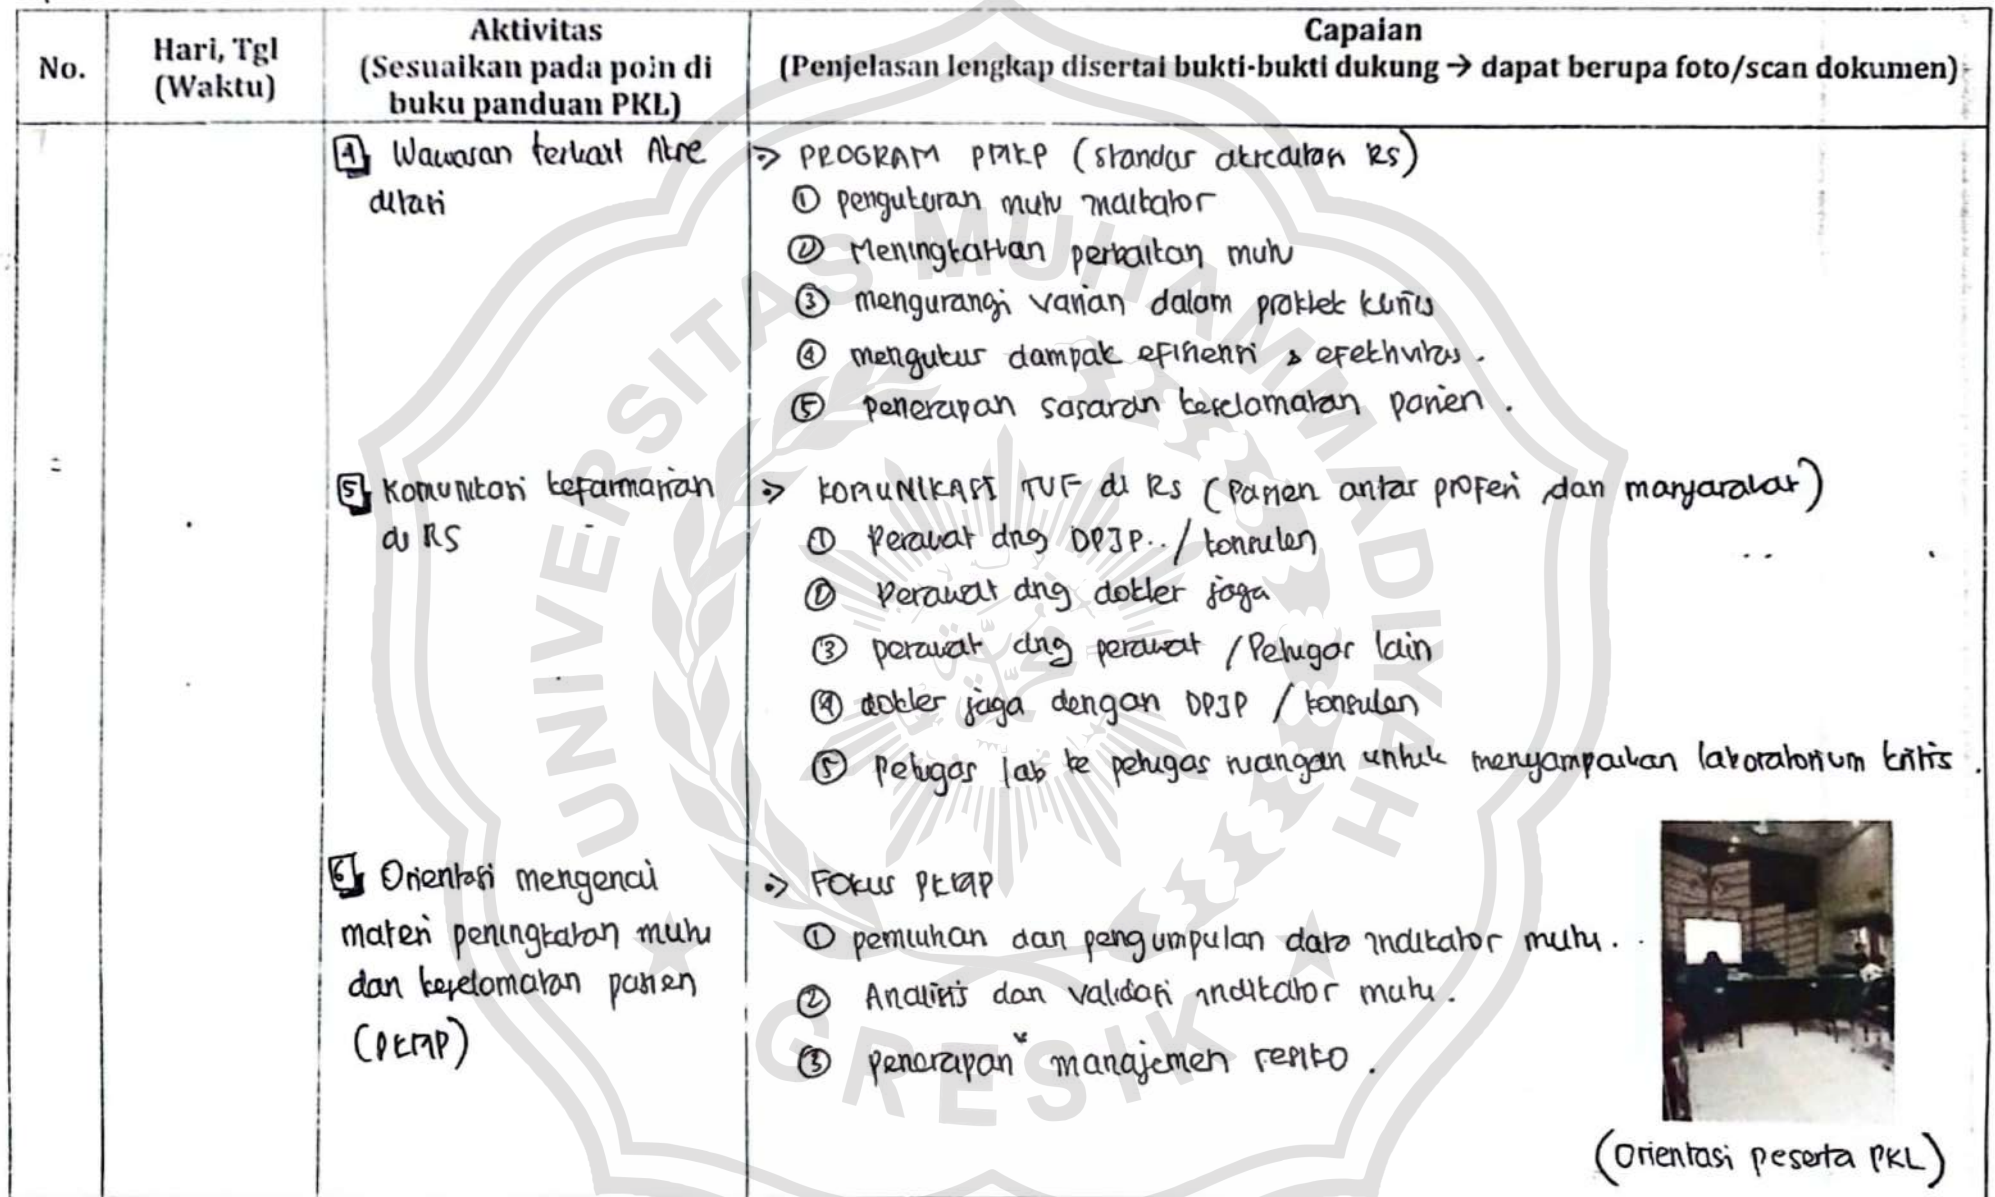 No.
Hari, Tgl
(Waktu)
Aktivitas
(Sesuaikan pada poin di
buku panduan PKL)
Capaian
(Penjelasan lengkap disertai bukti-bukti dukung → dapat berupa foto/scan dokumen)
4 Wawasan terkait
⇒ PROGRAM PMKP (standar akreditasi RS)
① pengukuran mutu indikator
② Meningkatkan perbaikan mutu
③ mengurangi varian dalam praktek klinis
④ mengukur dampak efisiensi & efektivitas.
⑤ penerapan sasaran keselamatan pasien.
5 Komunikasi kefarmasian
di RS
⇒ KOMUNIKASI di RS (Pasien antar profesi dan masyarakat)
① Perawat dng DPJP../ konsulen
② Perawat dng dokter jaga
③ perawat dng perawat / Petugas lain
④ dokter jaga dengan DPJP / konsulen
⑤ petugas lab ke petugas ruangan untuk menyampaikan laboratorium kritis.
6 Orientasi mengenai
materi peningkatan mutu
dan keselamatan pasien
(PKMP)
⇒ Fokus PKMP
① pemilihan dan pengumpulan data indikator mutu.
② Analisis dan validasi indikator mutu.
③ penerapan manajemen resiko.
(Orientasi peserta PKL)
UNIVERSITAS MUHAMMADIYAH
GRESIK